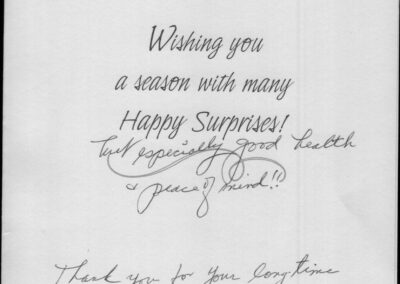 Wishing you
a season with many
Happy Surprises!
but especially good health
& peace of mind!!
Thank you for your long-time